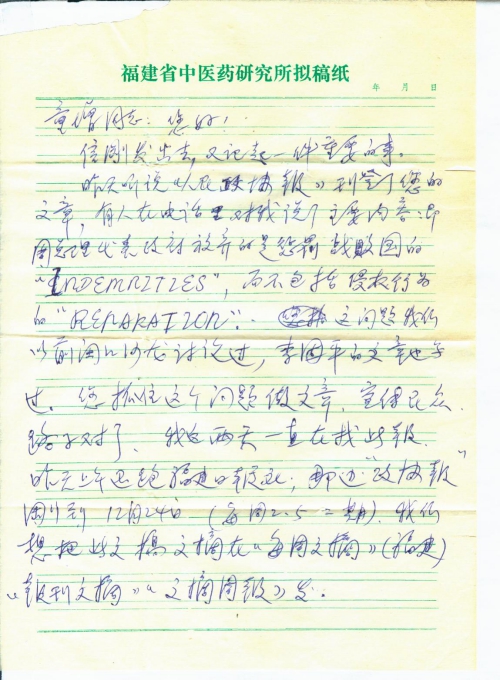 福建省中医药研究所拟稿纸
年 月 日
童增同志：您好！
信刚发出去，又记起一件重要的事。
昨天听说《人民政协报》刊登了您的
文章，有人在电话里对我说了主要内容：即
周总理代表政府放弃的是惩罚战败国的
“INDEMNITIES”，而不包括侵权行为
的“REPARATION”. 这问题我们
以前闽江沙龙讨论过，李国平的文章也写
过。您抓住这个问题做文章，宣传民众，
路子对了。我这两天一直在找此报，
昨天上午还跑福建日报社，那边“政协报”
刚到 12月24日（每周2.5二期）. 我们
想把此文摘在《每周文摘》（福建）
《报刊文摘》《文摘周报》发.